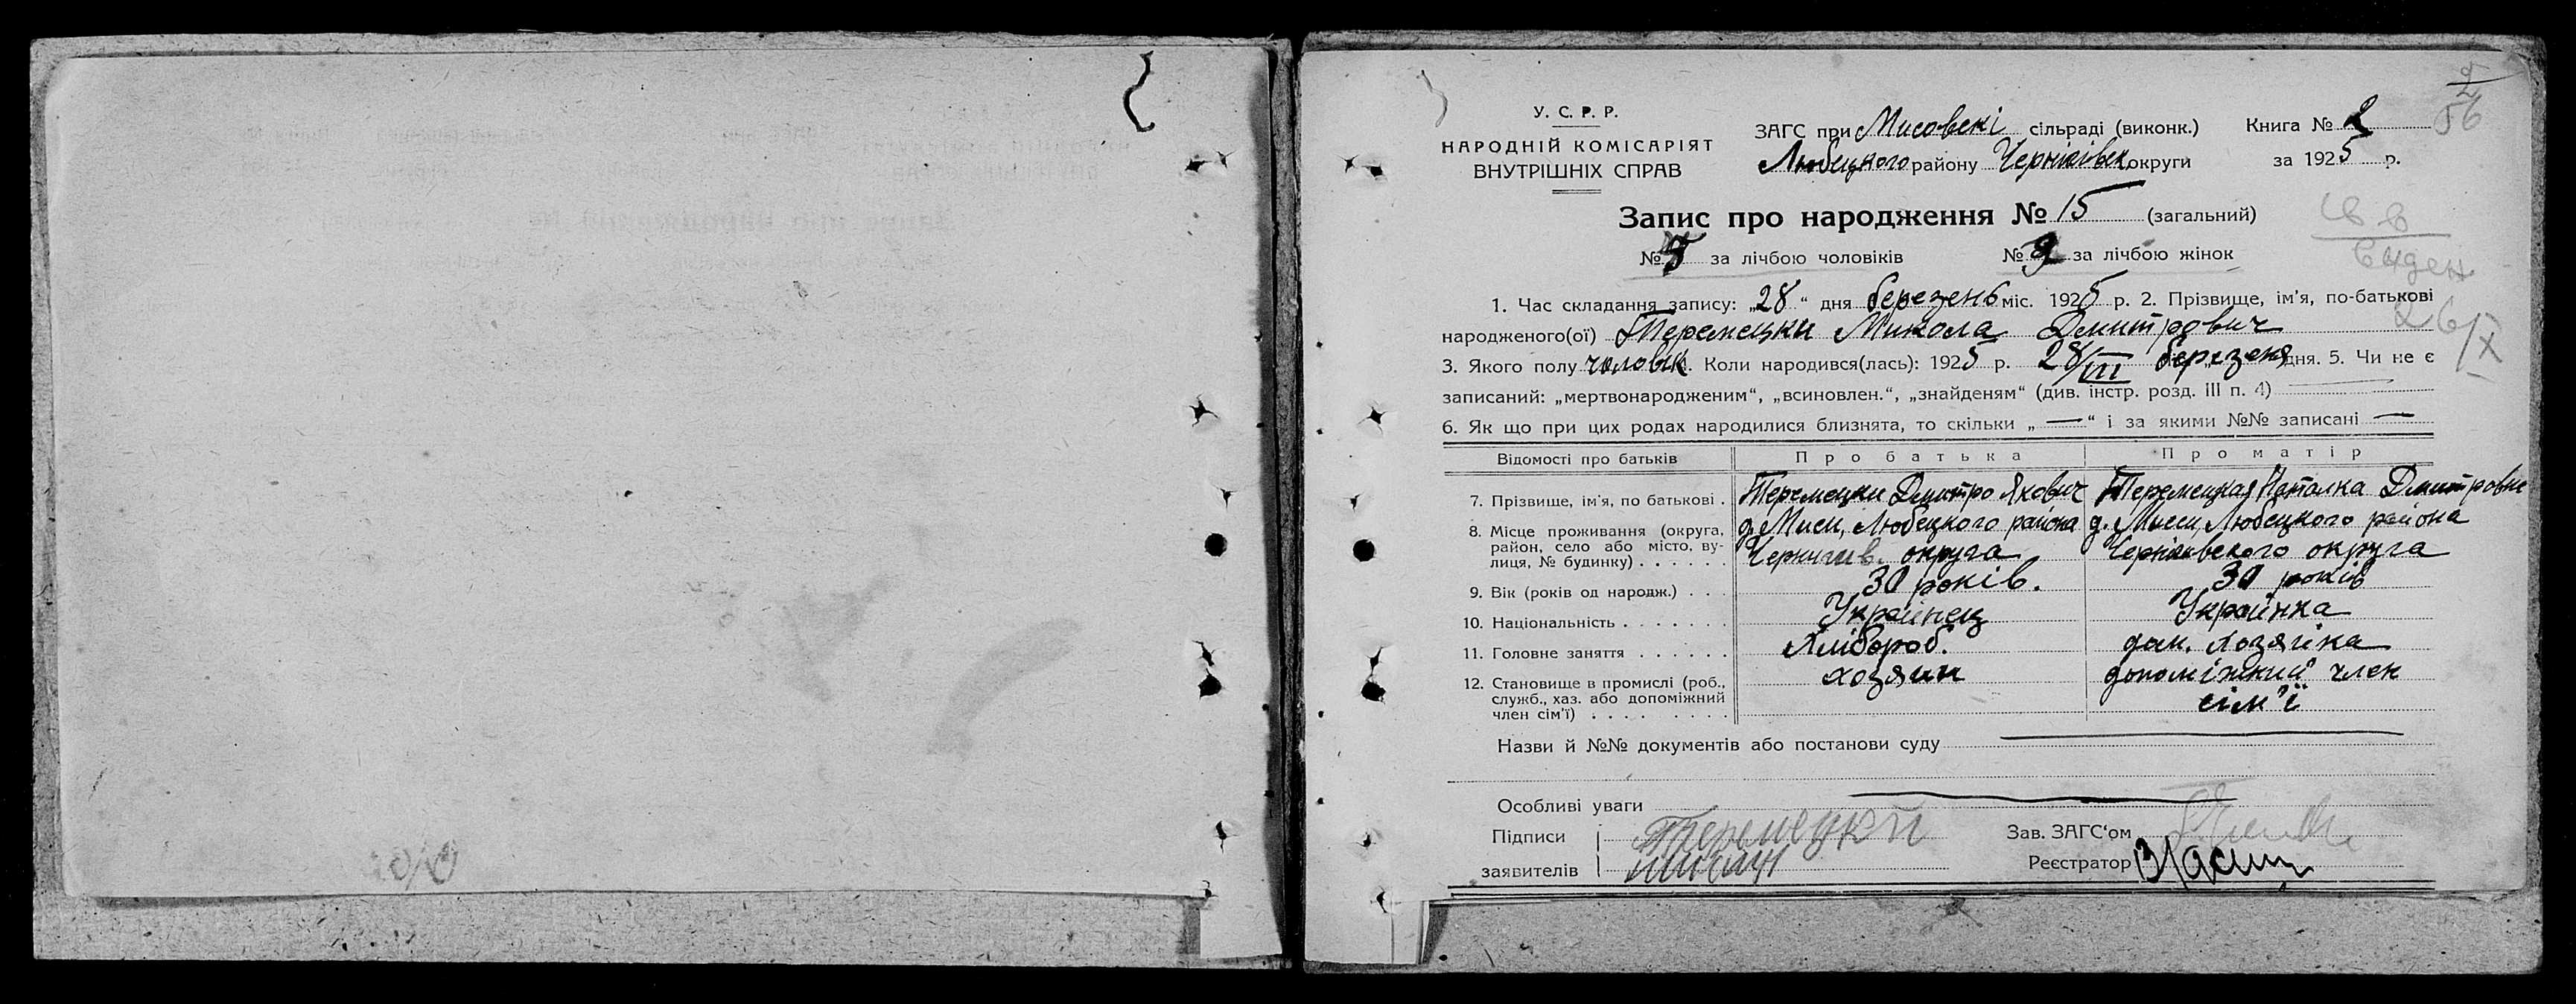 2
56
У. С. Р. Р.
НАРОДНІЙ КОМІСАРІЯТ
ВНУТРІШНІХ СПРАВ
ЗАГС при Мисовскі сільраді (виконк.) Книга № 2
Любецкого району Чернігівск округи за 1925 р.
Запис про народження № 15 (загальний)
№ за лічбою чоловіків № за лічбою жінок
1. Час складання запису: „28“ дня березень міс. 1925 р. 2. Прізвище, ім'я, по-батькові
народженого(ої) Теремецки Микола Дмитрович
3. Якого полу чоловік. Коли народився(лась): 1925 р. 28/III березеня дня. 5. Чи не є
записаний: „мертвонародженим“, „всиновлен.“, „знайденям“ (див. інстр. розд. III п. 4)
6. Як що при цих родах народилися близнята, то скільки „—“ і за якими №№ записані —
Відомості про батьків Про батька Про матір
7. Прізвище, ім'я, по батькові . Теремецки Дмитро Якович Теремецкая Наталка Дмитровне
8. Місце проживання (округа, район, село або місто, вулиця, № будинку) . . . . . . д. Миси, Любецкого района д. Мисси, Любецкого района
Чернигив. округа Чернігивского округа
9. Вік (років од народж.) . . . 30 років. 30 років
10. Національність . . . . . . . Украінец Украінка
11. Головне заняття . . . . . . Хлібороб. дом. хозяйка
12. Становище в промислі (роб., служб., хаз. або допоміжний член сім'ї) . . . . . . . . хозяин допоміжний член
сім'ї
Назви й №№ документів або постанови суду
Особливі уваги
Підписи Теремецкй Зав. ЗАГС'ом
заявителів Реєстратор